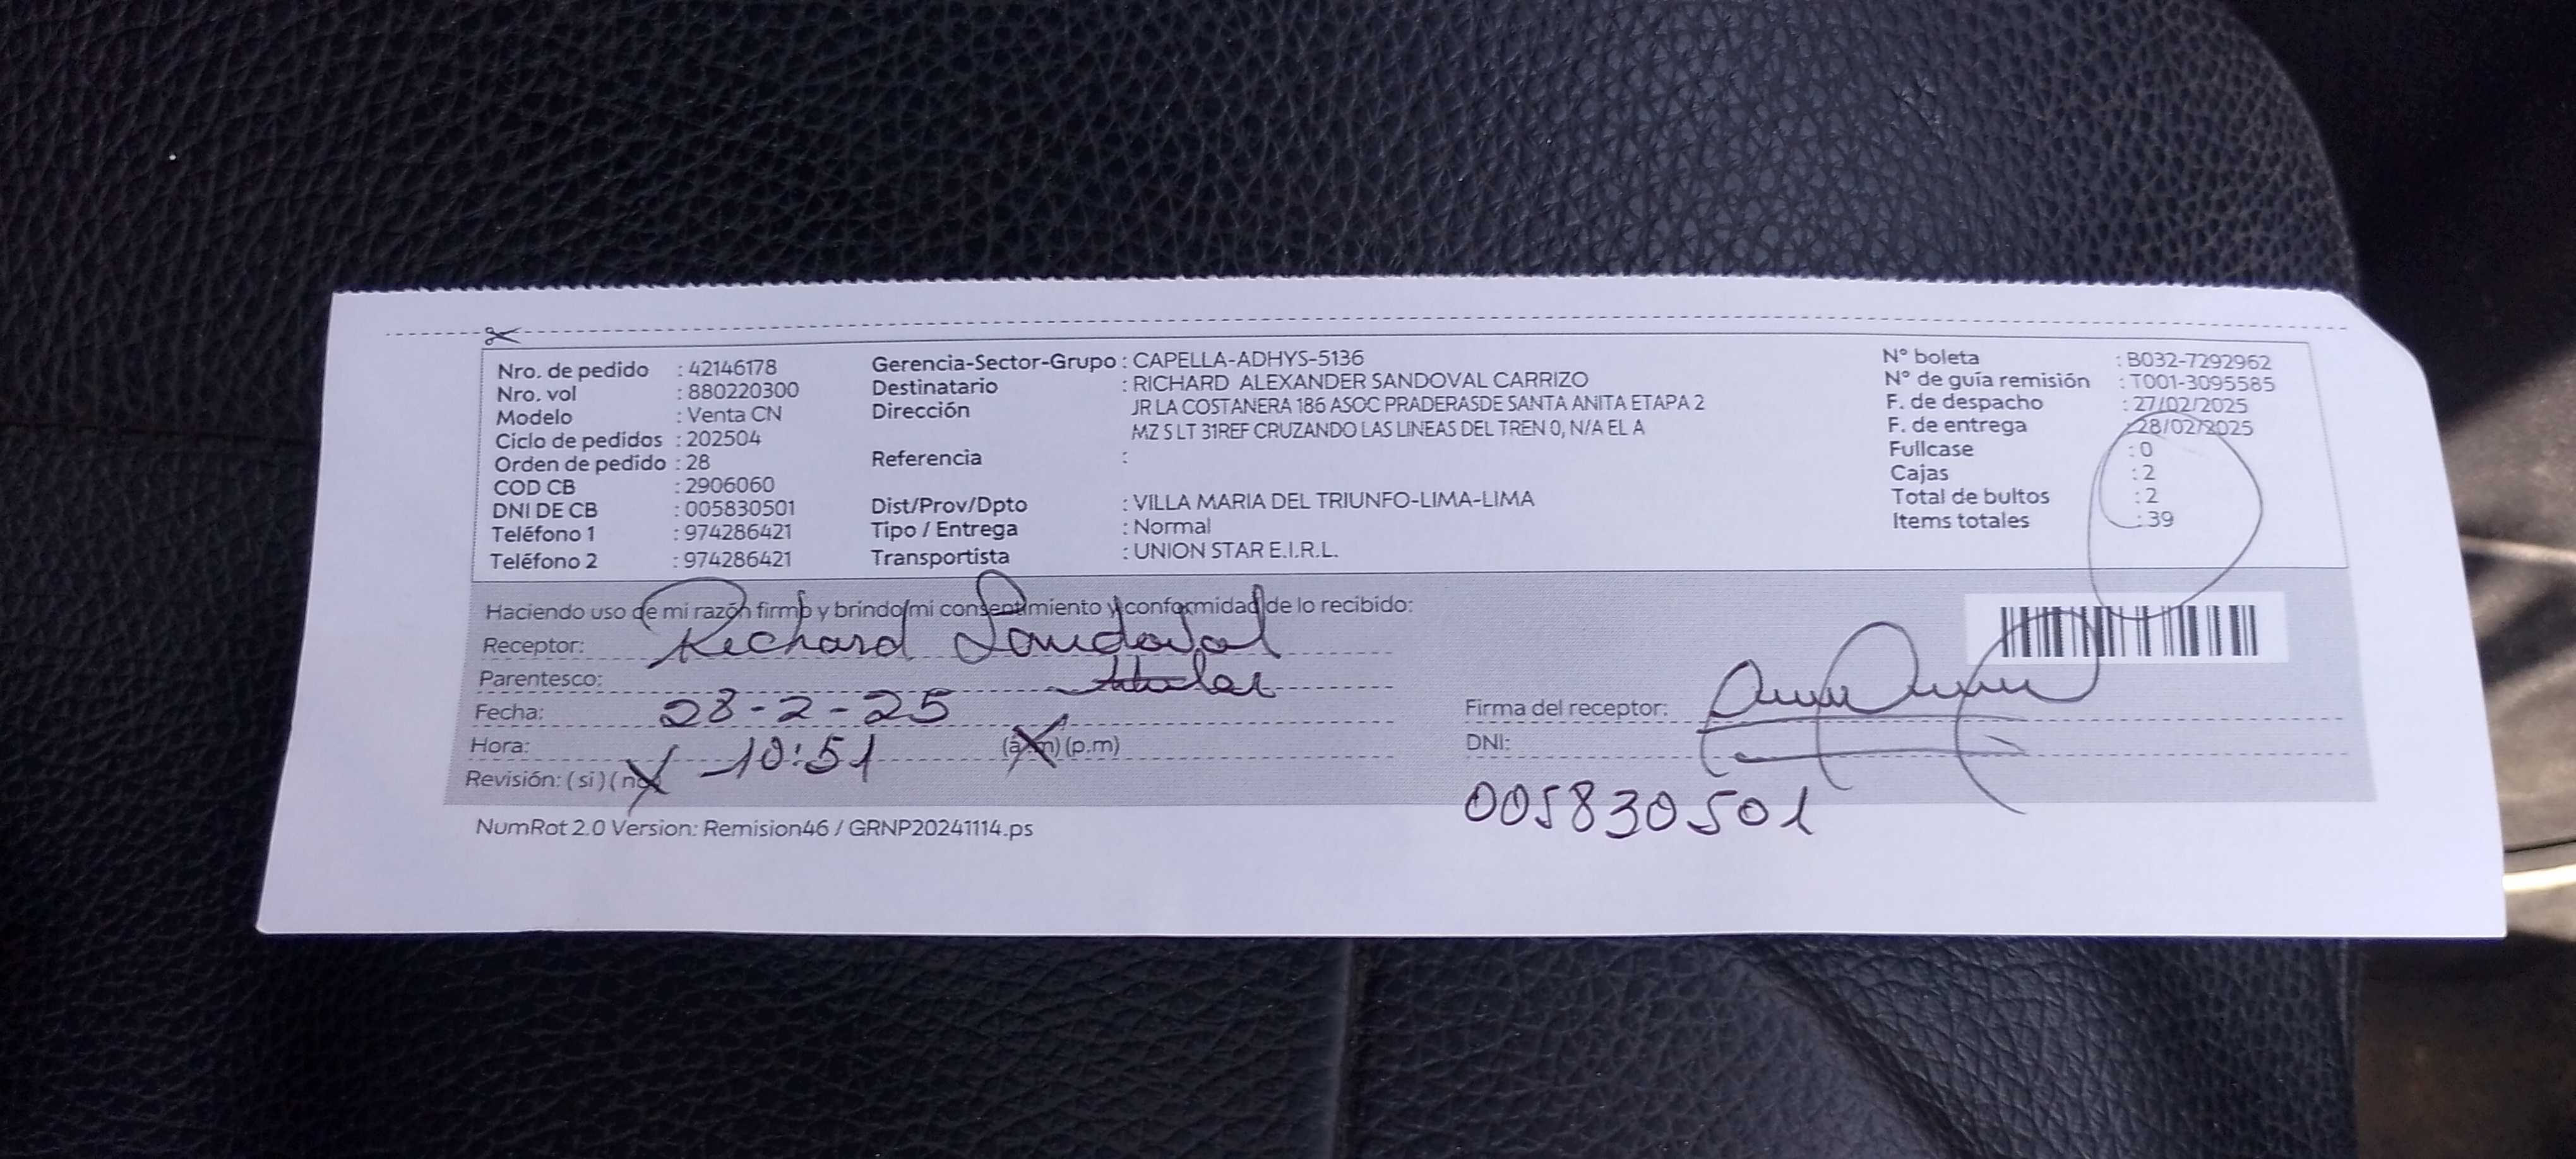 Nro. de pedido : 42146178
Nro. vol : 880220300
Modelo : Venta CN
Ciclo de pedidos : 202504
Orden de pedido : 28
COD CB : 2906060
DNI DE CB : 005830501
Teléfono 1 : 974286421
Teléfono 2 : 974286421
Gerencia-Sector-Grupo : CAPELLA-ADHYS-5136
Destinatario : RICHARD ALEXANDER SANDOVAL CARRIZO
Dirección JR LA COSTANERA 186 ASOC PRADERASDE SANTA ANITA ETAPA 2
MZ S LT 31REF CRUZANDO LAS LINEAS DEL TREN 0, N/A EL A
Referencia :
Dist/Prov/Dpto : VILLA MARIA DEL TRIUNFO-LIMA-LIMA
Tipo / Entrega : Normal
Transportista : UNION STAR E.I.R.L.
N° boleta : B032-7292962
N° de guía remisión : T001-3095585
F. de despacho : 27/02/2025
F. de entrega : 28/02/2025
Fullcase : 0
Cajas : 2
Total de bultos : 2
Items totales : 39
Haciendo uso de mi razón firmo y brindo mi consentimiento y conformidad de lo recibido:
Receptor: Richard Sandoval
Parentesco: titular
Fecha: 28-2-25
Hora: 10:51 (a.m) (p.m)
Revisión: (si) (no)
Firma del receptor:
DNI:
005830501
NumRot 2.0 Version: Remision46 / GRNP20241114.ps